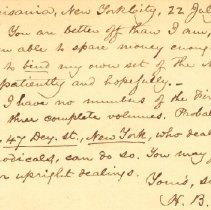 isania, New York City, 22 Jul
You are better off than I am,
en able to spare money enoug
to bind my own set of the
patiently and hopefully.
I have no numbers of the Dis
three complete volumes. Probab
, 47 Dey. st., New York, who deal
odicals, can do so. You may
r upright dealings.
Yours, s
N. B.